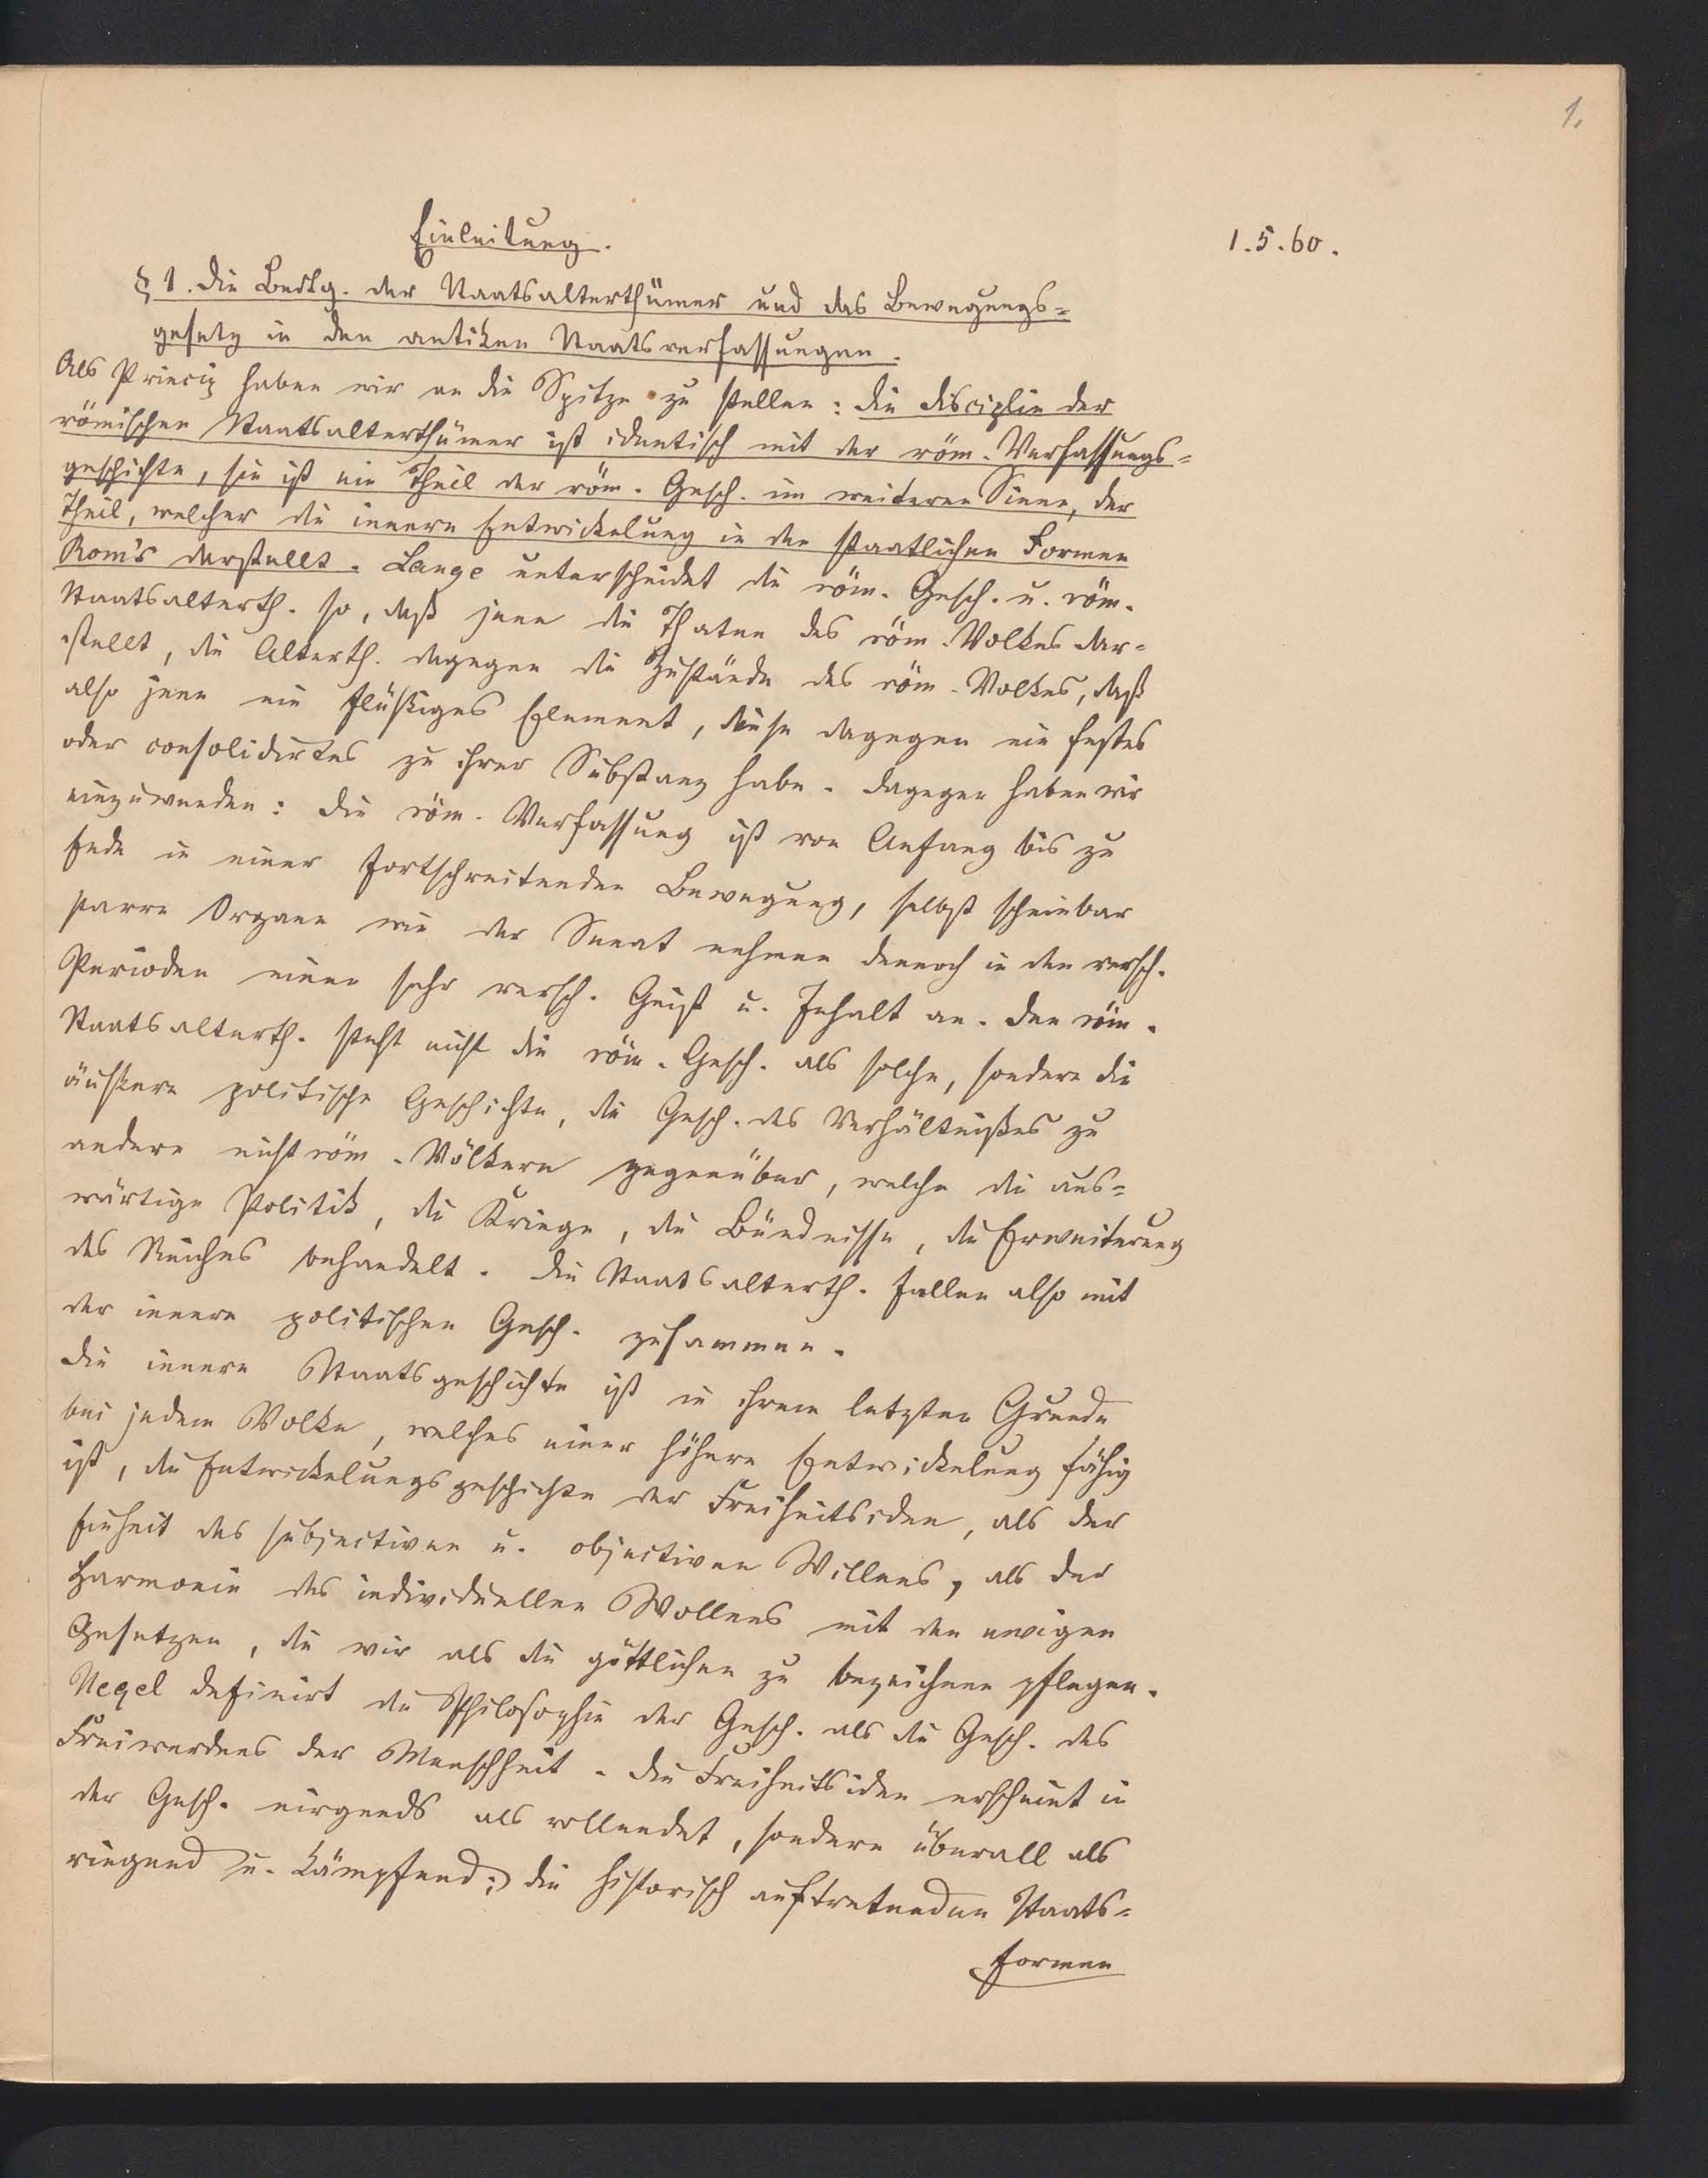 1.
Einleitung.
1.5.60.
§ 1. Die Bedtg. der Staatsalterthümer und das Bewegungs-
gesetz in den antiken Staatsverfassungen.
Als Princip haben wir an die Spitze zu stellen: die Disciplin der
römischen Staatsalterthümer ist identisch mit der röm. Verfassungs-
geschichte, sie ist ein Theil der röm. Gesch. im weiteren Sinne, der
Theil, welcher die innere Entwickelung in den staatlichen Formen
Rom's darstellt. Lange unterscheidet die röm. Gesch. u. röm.
Staatsalterth. so, daß jene die Thaten des röm. Volkes dar-
stellt, die Alterth. dagegen die Zustände des röm. Volkes, daß
also jene ein flüßiges Element, diese dagegen ein festes
oder consolidirtes zu ihrer Substanz habe. Dagegen haben wir
einzuwenden: die röm. Verfassung ist von Anfang bis zu
Ende in einer fortschreitenden Bewegung, selbst scheinbar
starre Organe wie der Senat nehmen dennoch in den versch.
Perioden einen sehr versch. Geist u. Inhalt an. Den röm.
Staatsalterth. steht nicht die röm. Gesch. als solche, sondern die
äußere politische Geschichte, die Gesch. des Verhältnißes zu
andern nichtröm. Völkern gegenüber, welche die aus-
wärtige Politik, die Kriege, die Bündnisse, die Erweiterung
des Reiches behandelt. Die Staatsalterth. fallen also mit
der innern politischen Gesch. zusammen.
Die innere Staatsgeschichte ist in ihrem letzten Grunde
bei jedem Volke, welches einer höhern Entwickelung fähig
ist, die Entwickelungsgeschichte der Freiheitsidee, als der
Einheit des subjectiven u. objectiven Willens, als der
Harmonie des individuellen Wollens mit den ewigen
Gesetzen, die wir als die göttlichen zu bezeichnen pflegen.
Hegel definirt die Philosophie der Gesch. als die Gesch. des
Freiwerdens der Menschheit. Die Freiheitsidee erscheint in
der Gesch. nirgends als vollendet, sondern überall als
ringend u. kämpfend; die historisch auftretenden Staats-
formen